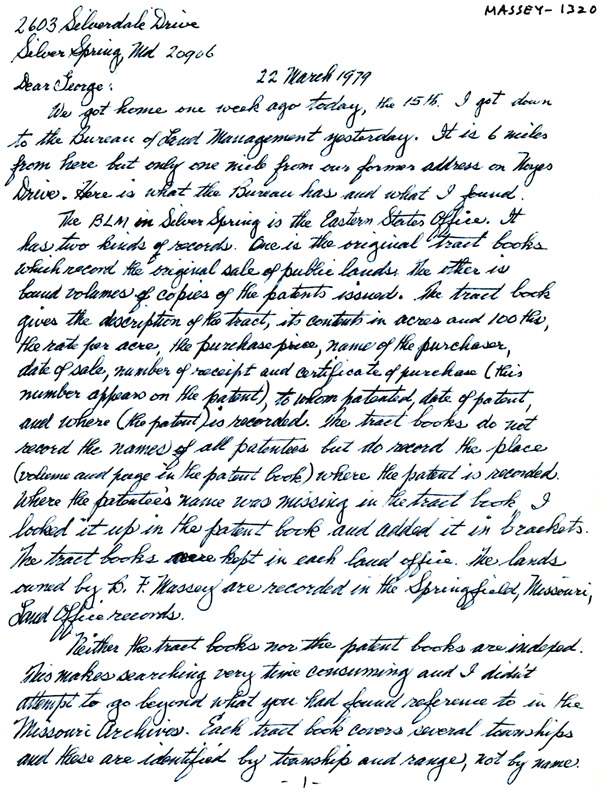 MASSEY-1320
2603 Silverdale Drive
Silver Spring, Md 20906
22 March 1979
Dear George:
We got home one week ago today, the 15th. I got down
to the Bureau of Land Management yesterday. It is 6 miles
from here but only one mile from our former address on Noyes
Drive. Here is what the Bureau has and what I found.
The BLM in Silver Spring is the Eastern States Office. It
has two kinds of records. One is the original tract books
which record the original sale of public lands. The other is
bound volumes of copies of the patents issued. The tract book
gives the description of the tract, its contents in acres and 100ths,
the rate per acre, the purchase price, name of the purchaser,
date of sale, number of receipt and certificate of purchase (this
number appears on the patent), to whom patented, date of patent,
and where (the patent) is recorded. The tract books do not
record the names of all patentees but do record the place
(volume and page in the patent book) where the patent is recorded.
Where the patentee's name was missing in the tract book I
looked it up in the patent book and added it in brackets.
The tract books were kept in each land office. The lands
owned by B. F. Massey are recorded in the Springfield, Missouri,
Land Office records.
Neither the tract books nor the patent books are indexed.
This makes searching very time consuming and I didn't
attempt to go beyond what you had found reference to in the
Missouri Archives. Each tract book covers several townships
and these are identified by township and range, not by name.
-1-